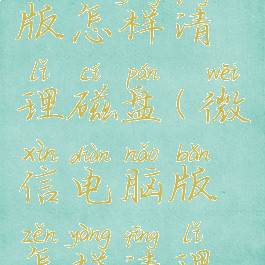 版怎样清
lǐ cí pán wēi
理磁盘(微
xìn diàn nǎo bǎn
信电脑版
zěn yàng qīng lǐ
怎样清理